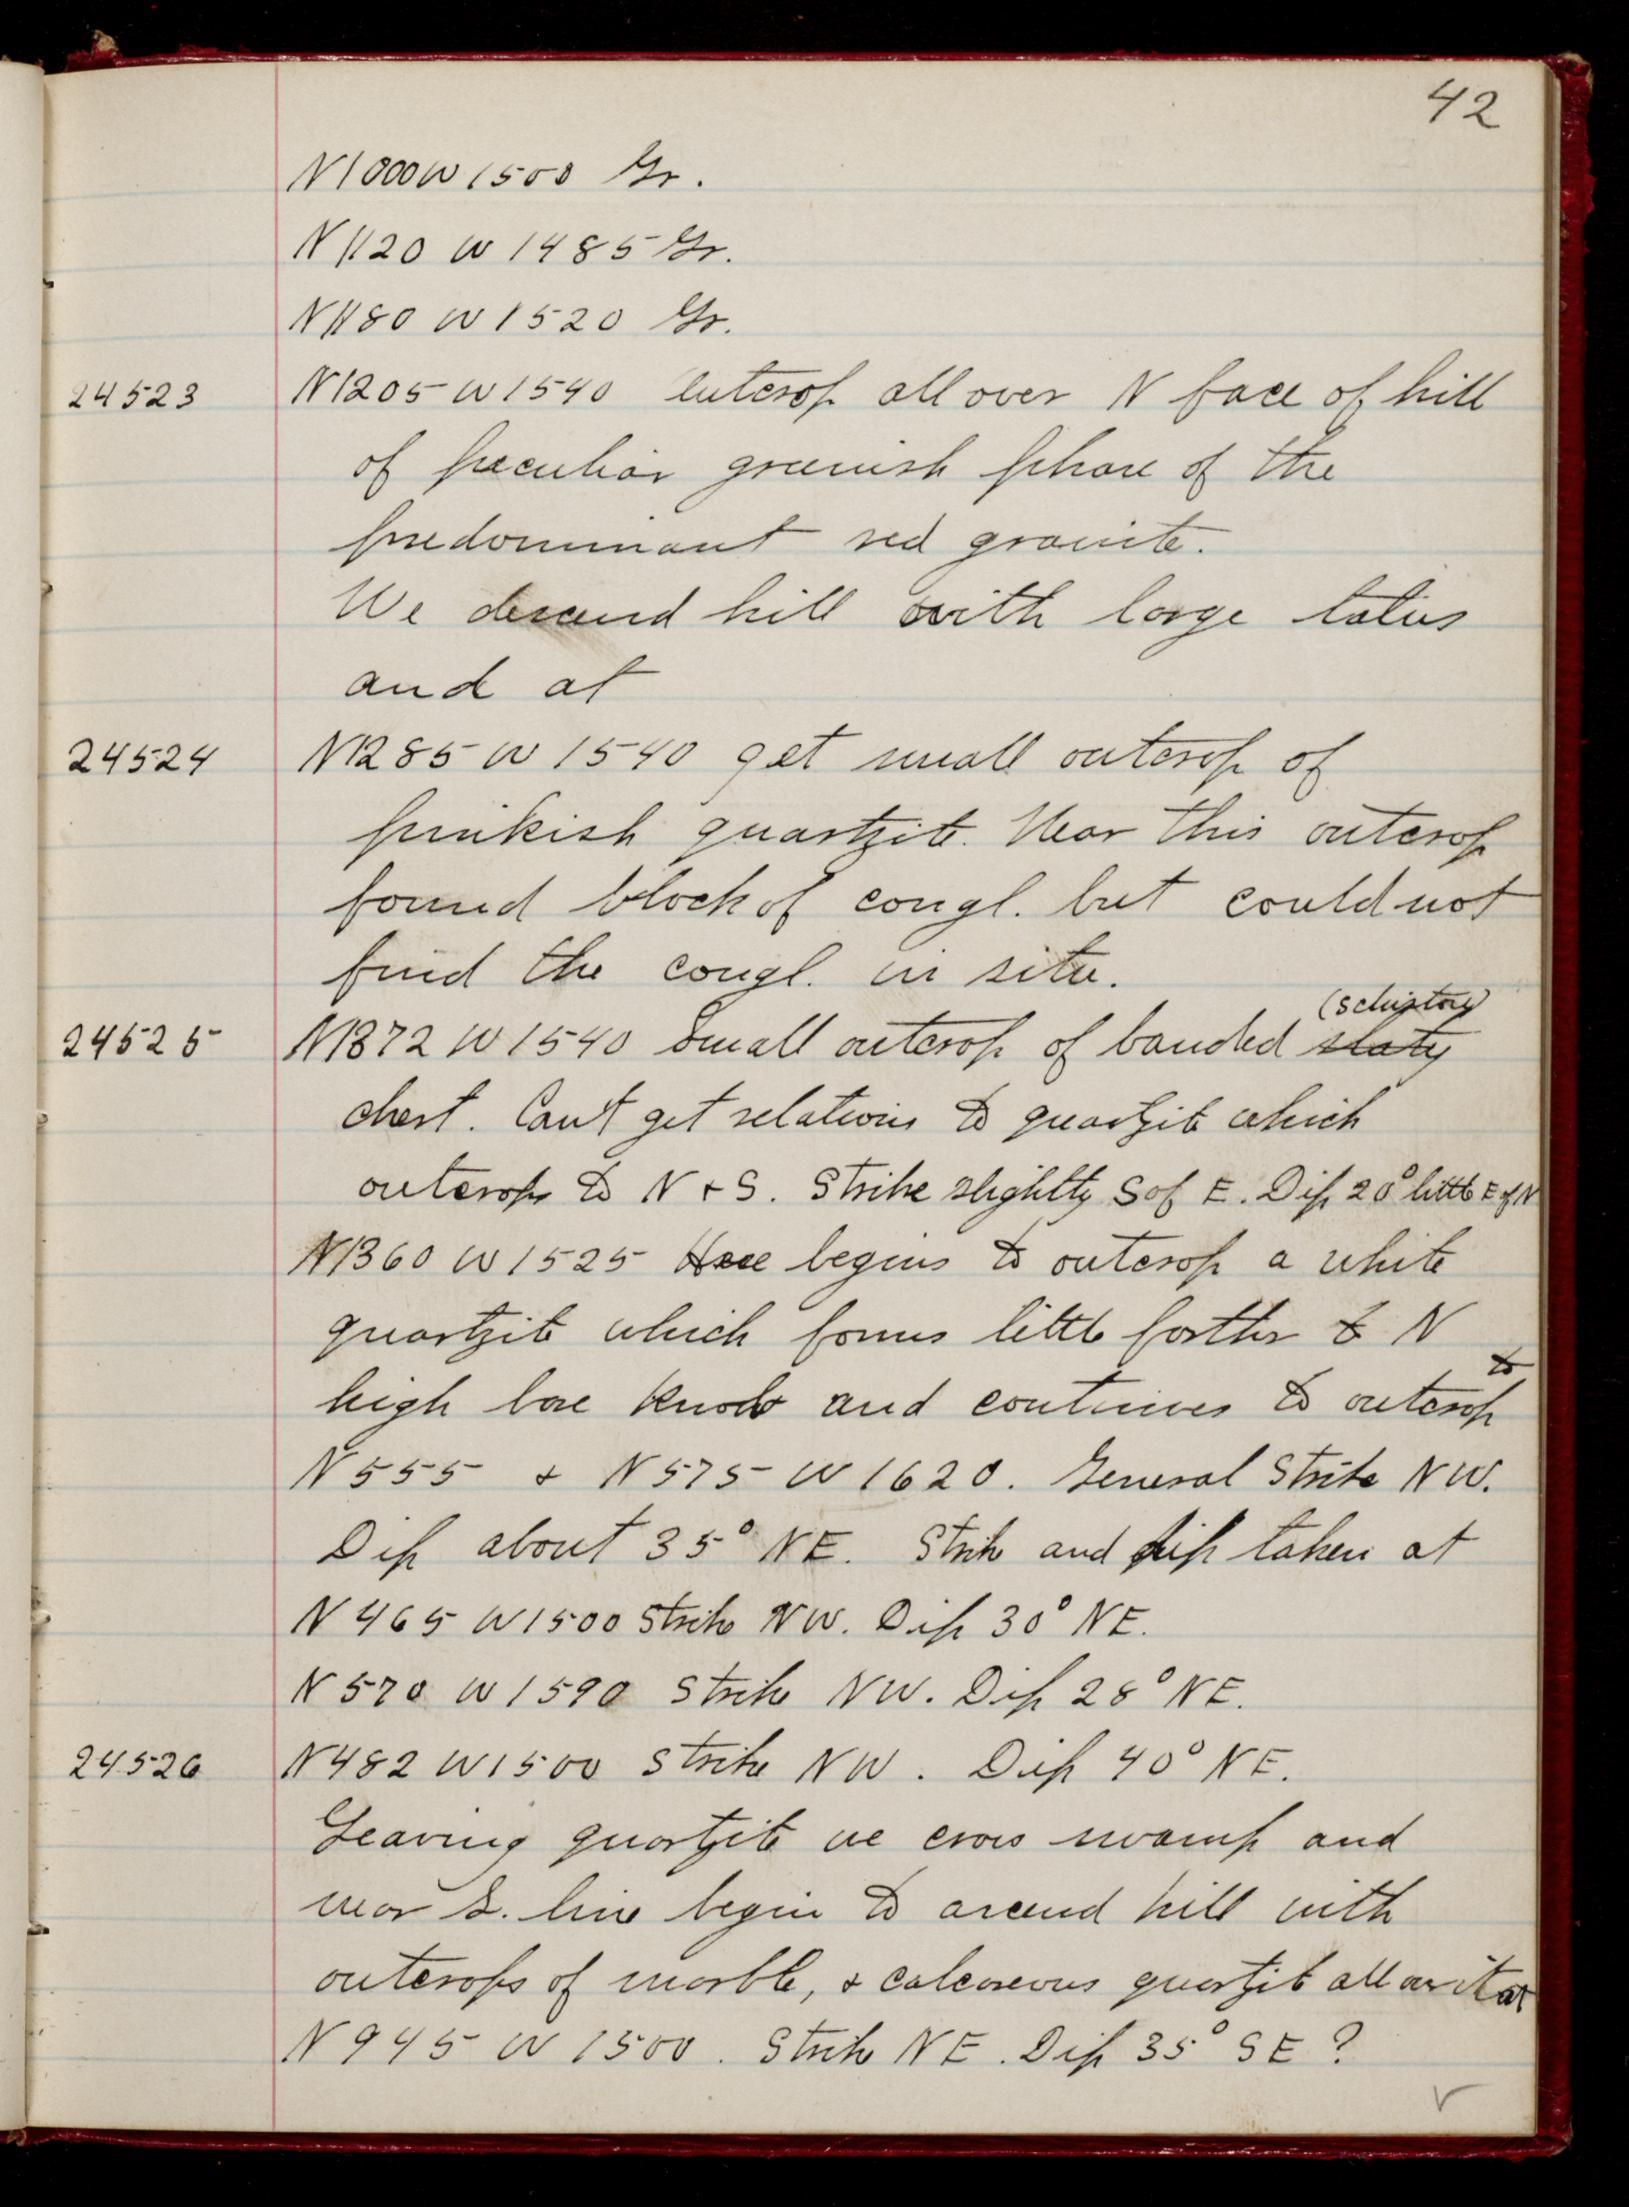 42
N1000 W1500 Gr.
N1120 W1485 Gr.
N1180 W1520 Gr.
24523 N1205 W1540 Outcrop all over N face of hill
of peculiar greenish phase of the
predominant red granite.
We descend hill with large talus
and at
24524 N1285 W1540 get small outcrop of
pinkish quartzite. Near this outcrop
found block of congl. but could not
find the congl. in situ.
(schistose)
24525 N1372 W1540 Small outcrop of banded slaty
chert. Can't get relations to quartzite which
outcrops to N + S. Strike slightly S of E. Dip 20° little E of N
N1360 W1525 Here begins to outcrop a white
quartzite which forms little farther to N
high bare knob and continues to outcrop to
N555 & N575 W1620. General Strike NW.
Dip about 35° NE. Strike and dip taken at
N465 W1500 Strike NW. Dip 30° NE.
N570 W1590 Strike NW. Dip 28° NE.
24526 N482 W1500 Strike NW. Dip 40° NE.
Leaving quartzite we cross swamp and
near S. line begin to ascend hill with
outcrops of marble, & calcareous quartzite all over it at
N945 W1500. Strike NE. Dip 35° SE?